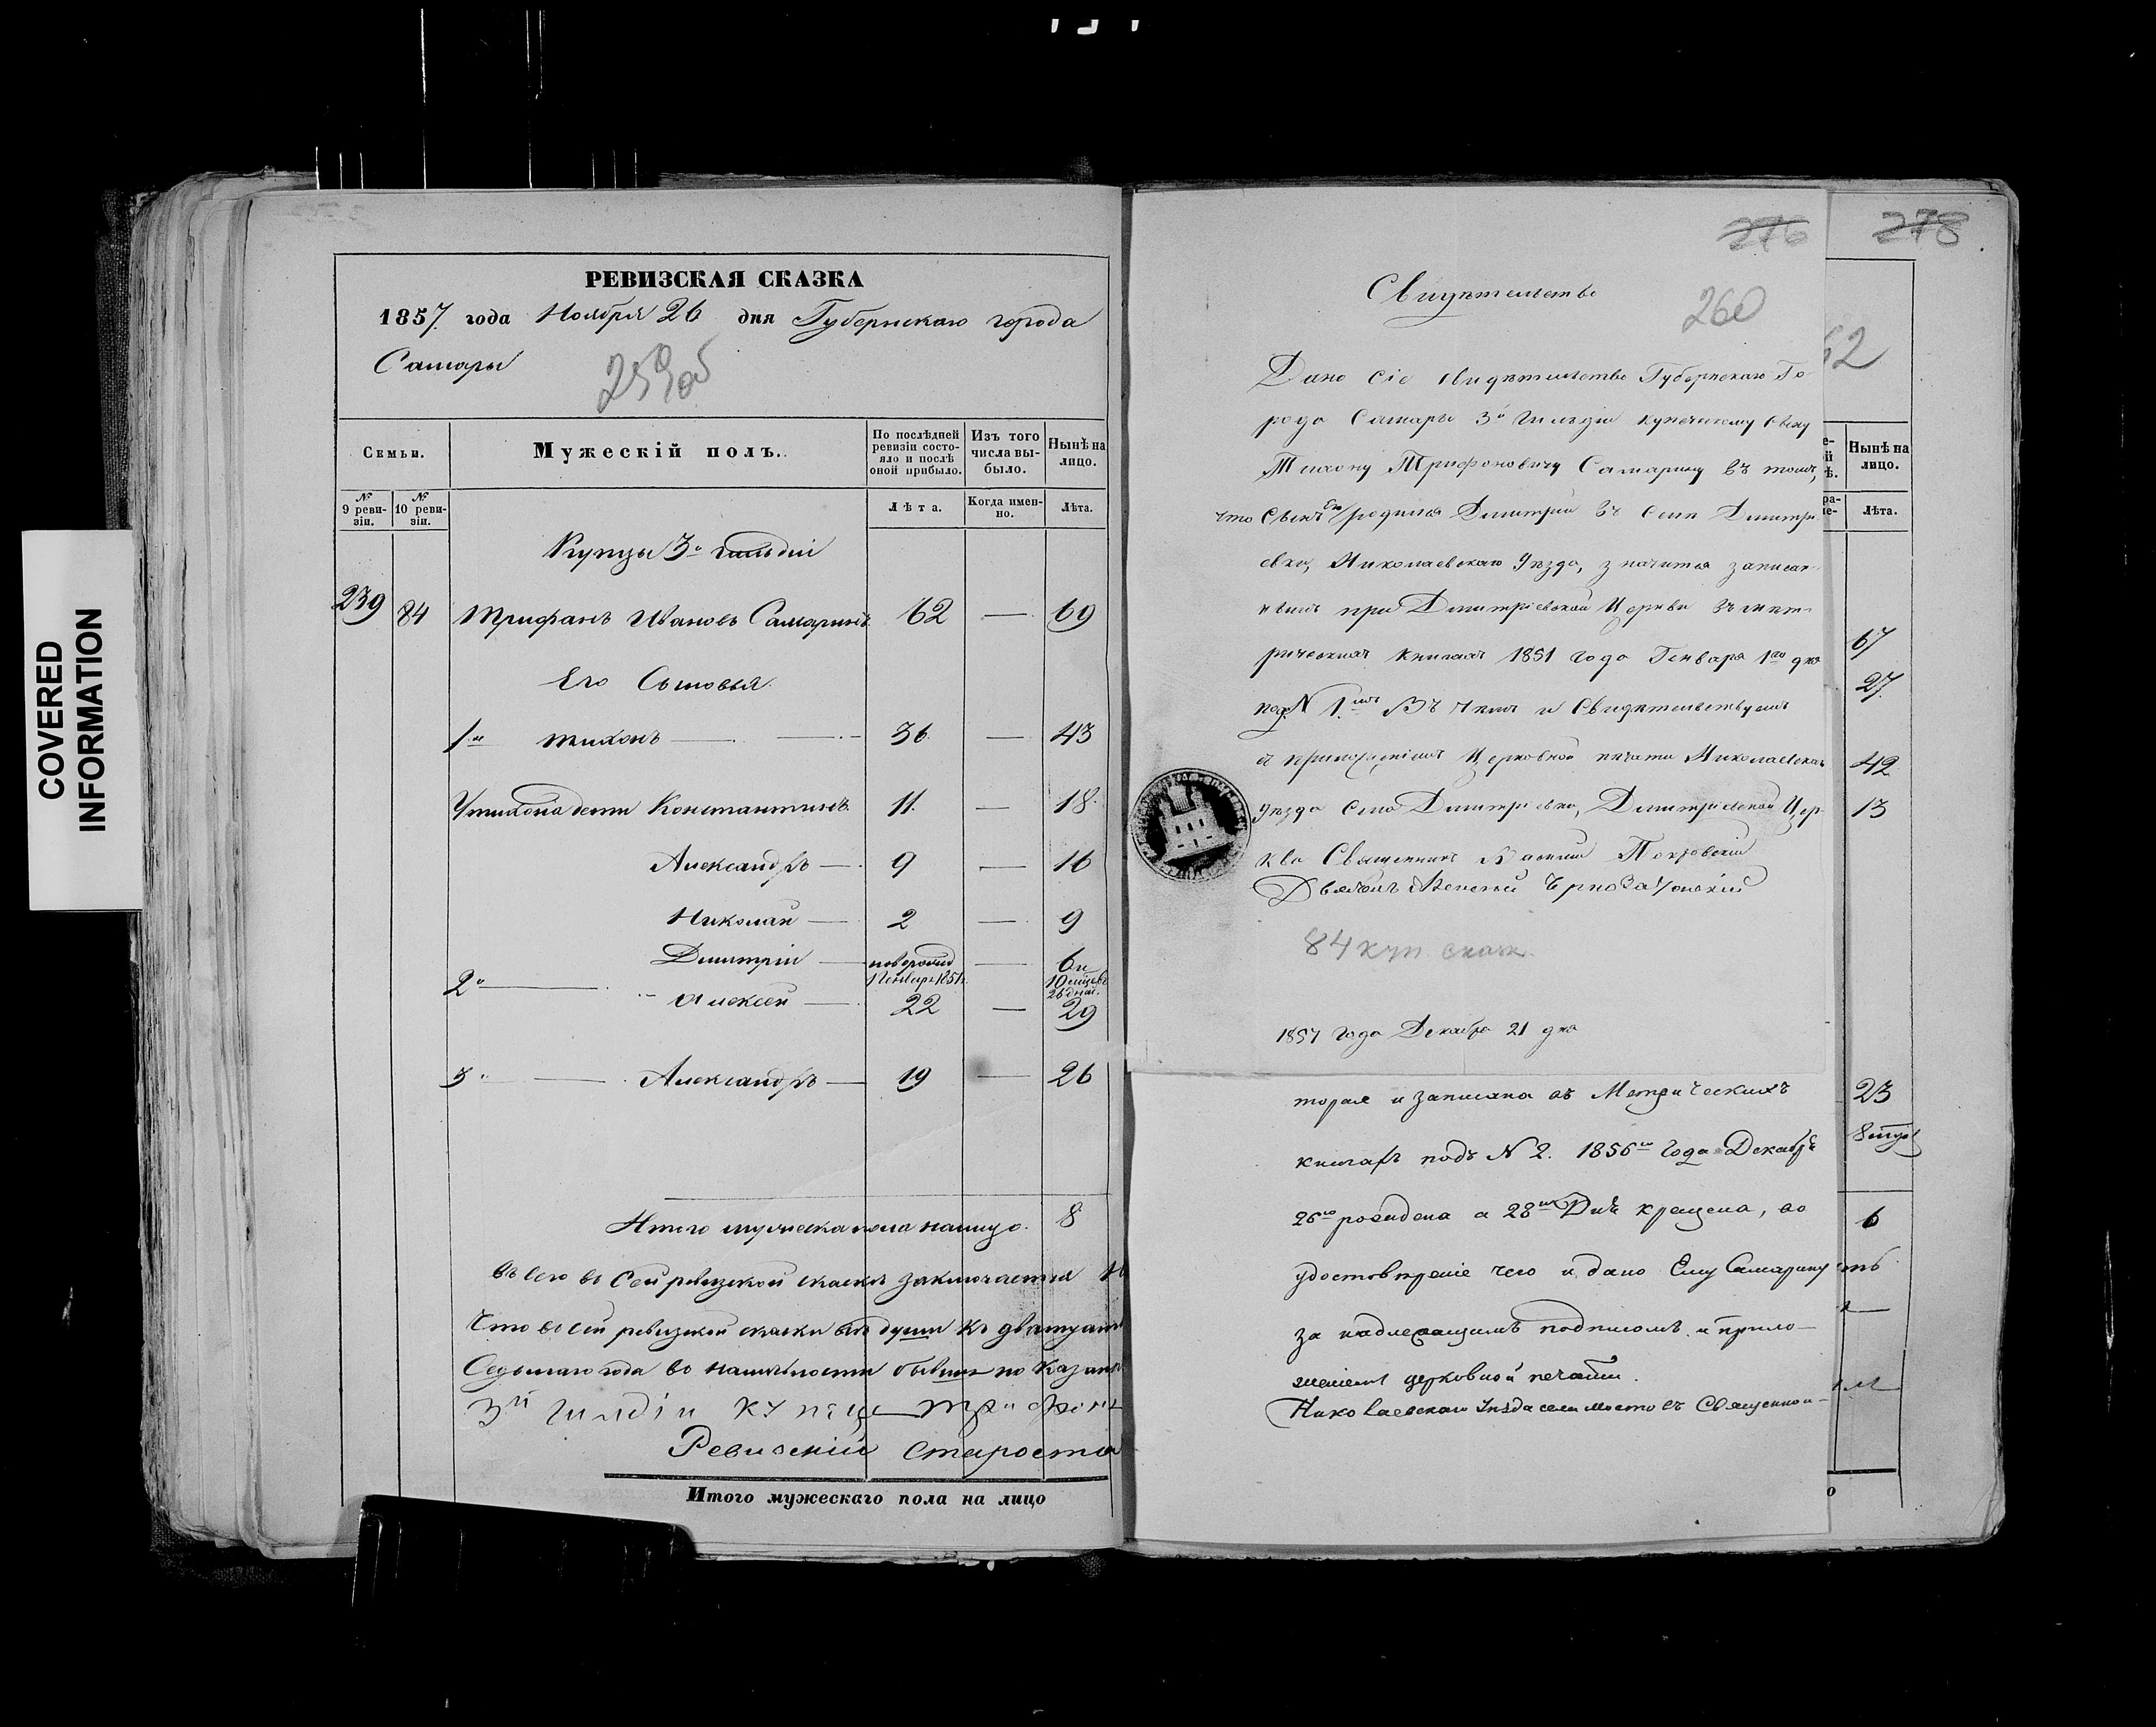 COVERED
INFORMATION
РЕВИЗСКАЯ СКАЗКА
1857. года Ноября 26 дня Губернскаго города
Самары
259об
Семьи.
Мужескій полъ.
По послѣдней ревизіи состояло и послѣ оной прибыло.
Изъ того числа выбыло.
Нынѣ на лицо.
№ 9 ревизіи.
№ 10 ревизіи.
Лѣта.
Когда именно.
Лѣта.
Купцы 3й гильдіи
239 84 Трифанъ Ивановъ Самаринъ 62 — 69
Его Сыновья
1й Тихонъ — 36 — 43
У тихона дети Константинъ 11. — 18.
Александръ — 9 — 16
Николай — 2 — 9
Дмитрій — новорожд — 6 и
1 Генваря 1851 г. 10 мѣсяцевъ
26 дней.
2й — Алексей — 22 — 29
3й — Александръ — 19 — 26
Итого мужеска пола налицо. 8
Въсего въ Сей ревизской скаски заключается
Что всей ревизской скаски все души къ дватцать
Седьмаго года во наличности бывшия по
3й гилдіи купецъ Трифонъ
Ревизскій Староста
Итого мужескаго пола на лицо
276
278
Свидѣтельство
260
62
Дано сіе свидѣтельство Губернскаго Го-
рода Самары 3й Гильдіи купеческому сыну
Тихону Трифоновичу Самарину въ томъ,
что Сынъ Его родился Димитрій въ Селѣ Димитрі-
евки, Николаевскаго Уѣзда, значится записан-
нымъ при Димитріевской Церкви въ мет-
рическихъ книгахъ 1851 года Генваря 1го дня
под N 1.мъ Въ чемъ и Свидѣтельствуемъ
съ приложеніемъ Церковной печати Николаевскаго
Уѣзда села Димитріевки, Димитріевской Цер-
кви Священникъ Василій Покровскій
Дьячокъ
84 куп. сказк.
1857 года Декабря 21 дня
торая и записана въ Метрическихъ
книгахъ подъ N 2. 1856го Года Декабря
26го рождена а 28го Дня крещена, во
удостовѣреніе чего и дано Ему Самарину
за надлежащимъ подписомъ и прило-
женіемъ церковной печати.
Николаевскаго Уѣзда села Мостовъ Священни-
Нынѣ на лицо.
Лѣта.
67
27.
42
13
23
6